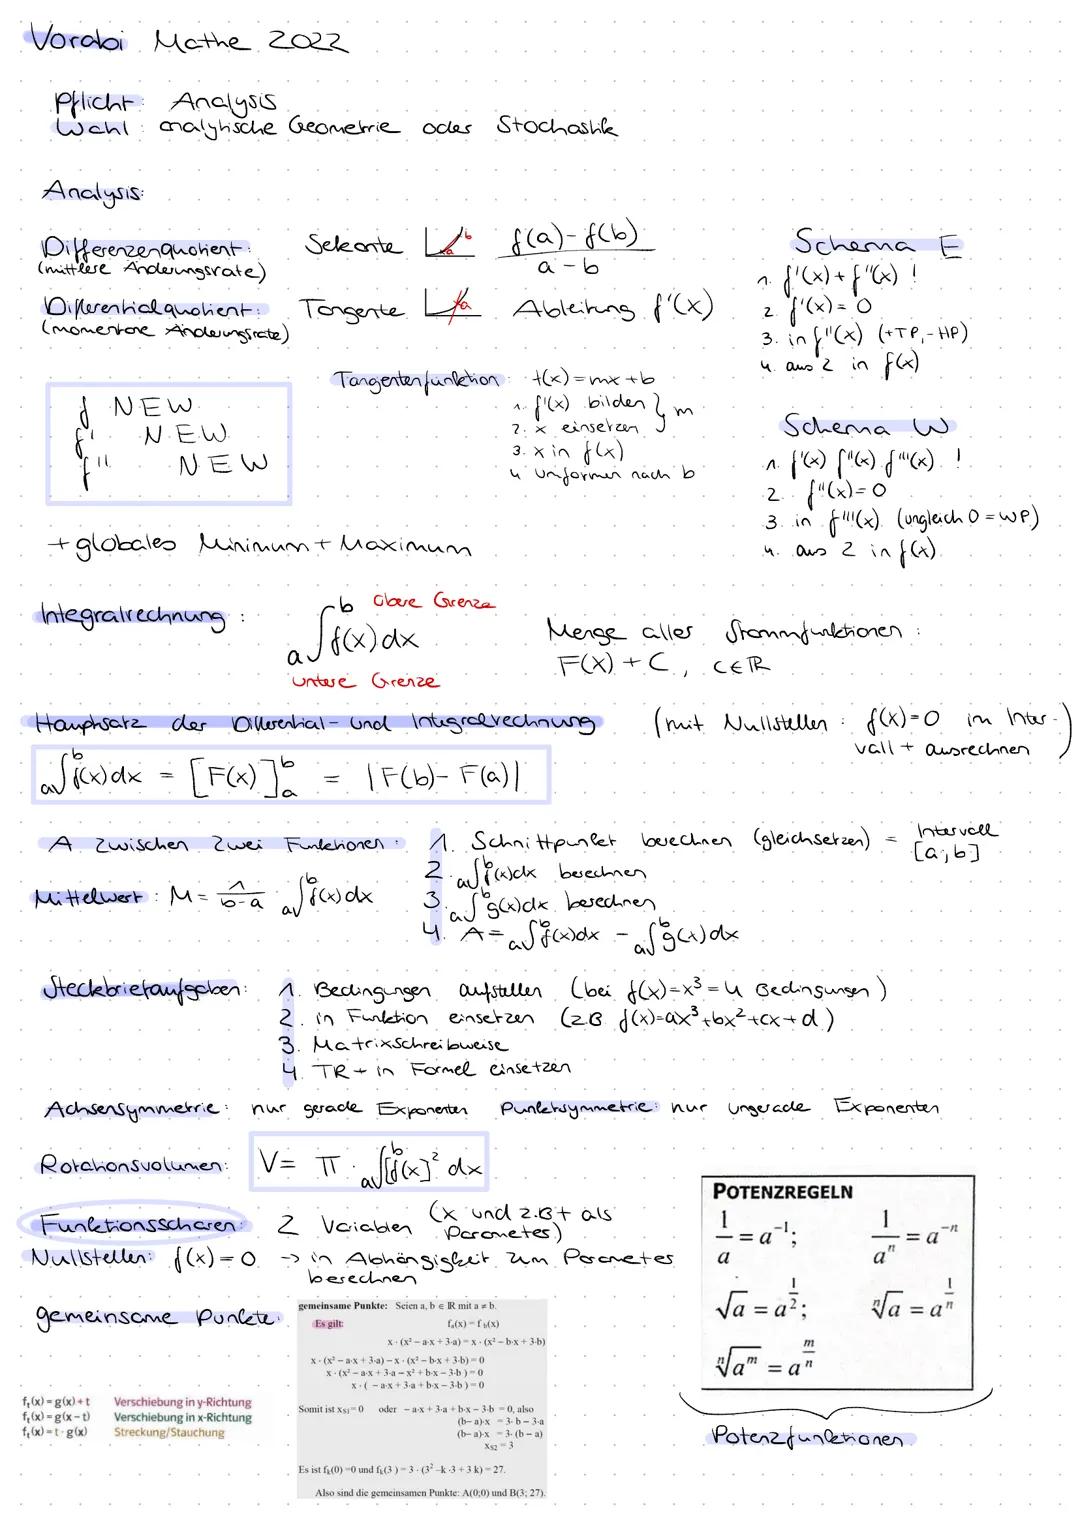 Vorabi Mathe 2022
Pflicht: Analysis
Wahl: analytische Geometrie oder Stochastik
Analysis:
Differenzenquotient: Sekante b a f(a)-f(b) / a-b
(mittlere Änderungsrate)
Differentialquotient: Tangente a Ableitung f'(x)
(momentane Änderungsrate)
Schema E
1. f'(x) + f''(x) !
2. f'(x) = 0
3. in f''(x) (+TP, -HP)
4. aus 2 in f(x)
Tangentenfunktion: t(x) = mx + b
1. f'(x) bilden } m
2. x einsetzen
3. x in f(x)
4. umformen nach b
f NEW
f' NEW
f'' NEW
Schema W
1. f'(x) f''(x) f'''(x) !
2. f''(x) = 0
3. in f'''(x) (ungleich 0 = WP)
4. aus 2 in f(x)
+ globales Minimum + Maximum
Integralrechnung: a∫b f(x) dx
obere Grenze
untere Grenze
Menge aller Stammfunktionen:
F(x) + C, C∈ℝ
Hauptsatz der Differential- und Integralrechnung
a∫b f(x) dx = [F(x)]ba = |F(b) - F(a)|
(mit Nullstellen: f(x)=0 im Inter-
vall + ausrechnen)
A zwischen zwei Funktionen: 1. Schnittpunkt berechnen (gleichsetzen) = Intervall [a;b]
2. a∫b f(x)dx berechnen
3. a∫b g(x)dx berechnen
4. A = a∫b f(x)dx - a∫b g(x)dx
Mittelwert: M = 1/b-a · a∫b f(x)dx
Steckbriefaufgaben: 1. Bedingungen aufstellen (bei f(x)=x³ = 4 Bedingungen)
2. in Funktion einsetzen (z.B f(x)=ax³+bx²+cx+d)
3. Matrixschreibweise
4. TR + in Formel einsetzen
Achsensymmetrie: nur gerade Exponenten Punktsymmetrie: nur ungerade Exponenten
Rotationsvolumen: V = π · a∫b [f(x)]² dx
Funktionsscharen: 2 Variablen (x und z.B t als Parameter)
Nullstellen: f(x) = 0 → in Abhängigkeit zum Parameter
berechnen
gemeinsame Punkte:
gemeinsame Punkte: Seien a, b ∈ ℝ mit a ≠ b.
Es gilt: fa(x) = f b(x)
x · (x² – a·x + 3·a) = x · (x² – b·x + 3·b)
x · (x² – a·x + 3·a) – x · (x² – b·x + 3·b) = 0
x · (x² – a·x + 3·a – x² + b·x – 3·b ) = 0
x · ( – a·x + 3·a + b·x – 3·b ) = 0
Somit ist xS1 = 0 oder – a·x + 3·a + b·x – 3·b = 0, also
(b– a)·x = 3· b – 3·a
(b– a)·x = 3· (b – a)
xS2 = 3
Es ist fk(0) =0 und fk(3 ) = 3 · (3² –k ·3 + 3 k) = 27.
Also sind die gemeinsamen Punkte: A(0;0) und B(3; 27).
ft(x) = g(x) + t Verschiebung in y-Richtung
ft(x) = g(x – t) Verschiebung in x-Richtung
ft(x) = t · g(x) Streckung/Stauchung
POTENZREGELN
1/a = a⁻¹; 1/aⁿ = a⁻ⁿ
√a = a^(1/2); ⁿ√a = a^(1/n)
ⁿ√aᵐ = a^(m/n)
Potenzfunktionen